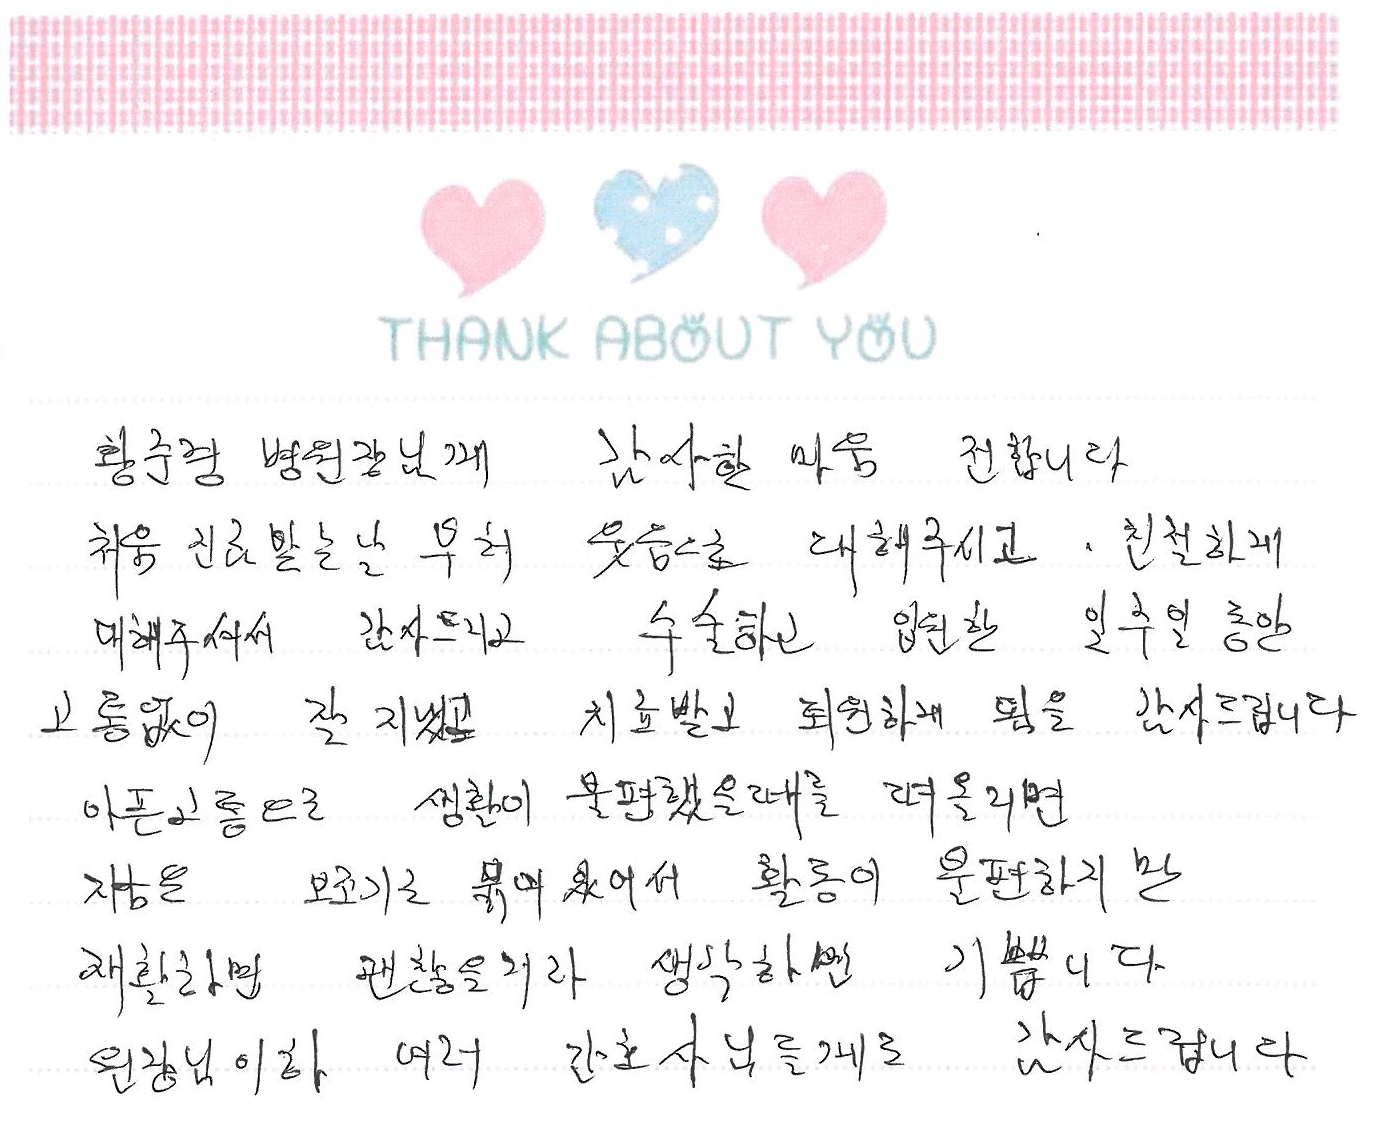 THANK ABOUT YOU
황준경 병원장님께 감사한 마음 전합니다
처음 진료받는날 부터 웃음으로 대해주시고. 친철하게
대해주셔서 감사드리고 수술하고 입원한 일주일 동안
고통없이 잘 지냈고 치료받고 퇴원하게 됨을 감사드립니다
아픈고통으로 생활이 불편했을때를 떠올리면
지금은 보조기로 묶여 있어서 활동이 불편하지만
재활하면 괜찮을거라 생각하면 기쁩니다
원장님이하 여러 간호사님들께도 감사드립니다